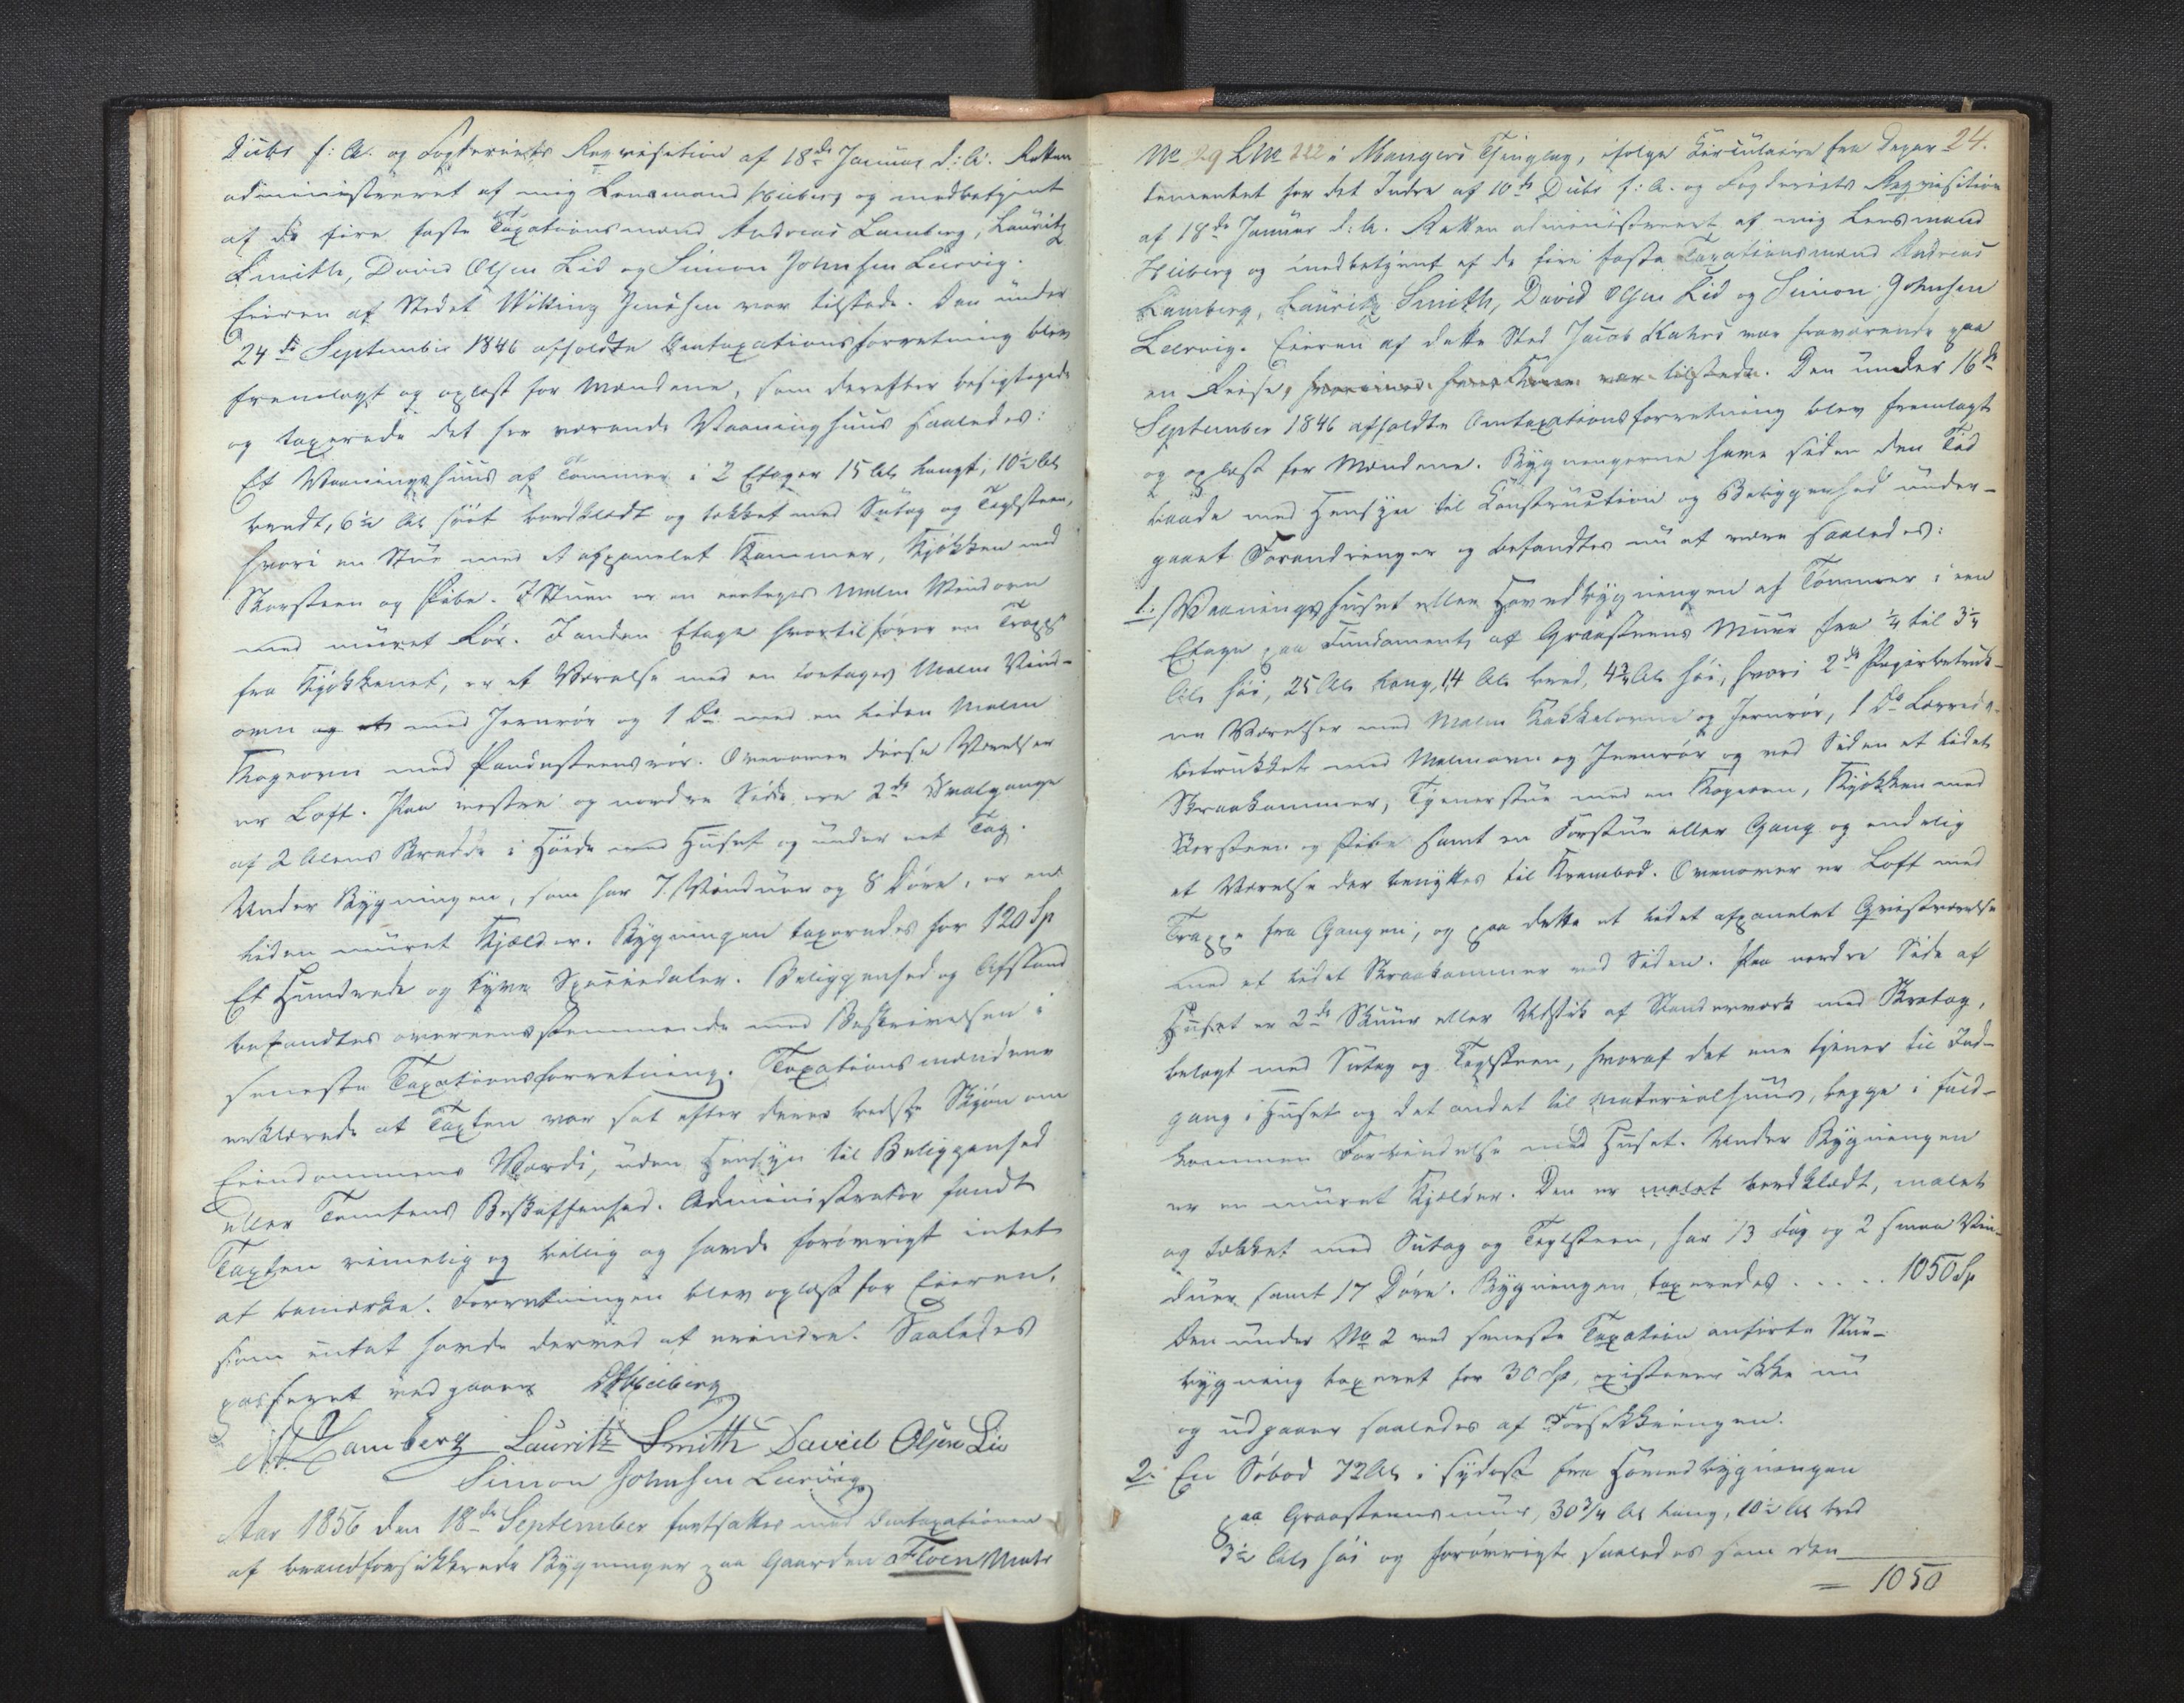 Dcbr f: A. og Fogderiets Reqvisition af 18de Januar d: A. Retten
administreret af mig Lensmand Heiberg og medbetjent
af de fire faste Taxationsmænd Andreas Lamberg, Lauritz
Smith, David Olsen Lid og Simon Johnsen Leervig.
Eieren af Stedet Wiking Jensen var tilstede. Den under
24de September 1846 afholdte Omtaxationsforretning blev
fremlagt og oplæst for Mændene, som derefter besigtigede
og taxerede det her værende Vaaninghuus saaledes:
Et Vaaningshuus af Tømmer i 2 Etager 15 Al. langt, 10½ Al.
bredt, 6½ Al. høit bordklædt og tækket med Sutag og Teglsteen,
hvori en Stue med et afpanelet Kammer, Kjøkken med
Skorsteen og Pibe. I Stuen er en eetages Malm Vindovn
med muret Rør. I anden Etage hvortil fører en Trapp
fra Kjøkkenet, er et Værelse med en toetages Malm Vind-
ovn og et med Jernrør og 1 Do med en liden Malm
Kogeovn med Pandesteensrør. Ovenover disse Værelser
er Loft. Paa vestre og nordre Side ere 2de Svalgange
af 2 Alens Bredde i Høide med Huset og under eet Tag.
Under Bygningen, som har 7 Vinduer og 8 Døre, er en
liden muret Kjælder. Bygningen taxeredes for 120 Sp
Et Hundrede og tyve Speciedaler. Beliggenhed og Afstand
befandtes overeensstemmende med Beskrivelsen i
seneste Taxationsforretning. Taxationsmændene
erklærede at Taxten var sat efter deres bedste Skjøn om
Eiendommens Værdi, uden Hensyn til Beliggenhed
eller Tomtens Beskaffenhed. Administrator fandt
Taxten rimelig og billig og havde forøvrigt intet
at bemærke. Forretningen blev oplæst for Eieren,
som intet havde derved at erindre. Saaledes
passeret vedgaaes Heiberg
A. Lamberg Lauritz Smith David Olsen Lid
Simon Johnsen Leervig
Aar 1856 den 18de September fortsattes med Omtaxationen
af brandforsikkrede Bygninger paa Gaarden Floen Matr
24.
No 29 LNo 222 i Mangers Thinglag, ifølge Circulaire fra Depar
tementet for det Indre af 10de Dcbr f: A. og Fogderiets Reqvisition
af 18de Januar d: A. Retten administreret af mig Lensmand
Heiberg og medbetjent af de fire faste Taxationsmænd Andreas
Lamberg, Lauritz Smith, David Olsen Lid og Simon Johnsen
Leervig. Eieren af dette Sted Jacob Kahrs var fraværende paa
en Reise, hvorimod hans Kone var tilstede. Den under 16de
September 1846 afholdte Omtaxationsforretning blev fremlagt
og oplæst for Mændene. Bygningerne have siden den Tid
baade med Hensyn til Construction og Beliggenhed under-
gaaet Forandringer og befandtes nu at være saaledes:
1. Vaaningshuset eller Hovedbygningen af Tømmer i een
Etage paa Fundament af Graasteens Muur fra ¼ til 3¼
Al. høi, 25 Al. lang, 14 Al. bred, 4¾ Al. høi, hvori 2de Papirbetruk-
ne Værelser med Malm Kakkelovne og Jernrør, 1 Do Lærreds-
betrukket med Malmovn og Jernrør og ved Siden et lidet
Skraakammer, Tjenerstue med en Kogeovn, Kjøkken med
Skorsteen og Pibe samt en Forstue eller Gang og endelig
et Værelse der benyttes til Krambod. Ovenover er Loft med
Trappe fra Gangen, og paa dette et lidet afpanelet Gjesteværelse
med et lidet Skraakammer ved Siden. Paa nordre Side af
Huset er 2de Skuur eller Udstik af Standerværk med Skretag,
belagt med Sutag og Teglsteen, hvoraf det ene tjener til Ind-
gang i Huset og det andet til Materialhuus, begge i fuld-
kommen Forbindelse med Huset. Under Bygningen
er en muret Kjælder. Den er malet bordklædt, malet
og tækket med Sutag og Teglsteen, har 13 Fag og 2 smaa Vin-
duer samt 17 Døre. Bygningen taxeredes . . . . . 1050 Sp
Den under No 2 ved seneste Taxation anførte Stue-
bygning taxeret for 30 Sp, existerer ikke nu
og udgaaer saaledes af Forsikkringen.
2. En Søbod 72 Al. i sydost fra Hovedbygningen
paa Graasteensmuur, 30¾ Al. lang, 10½ Al. bred
3½ Al. høi og forøvrigt saaledes som den
= 1050